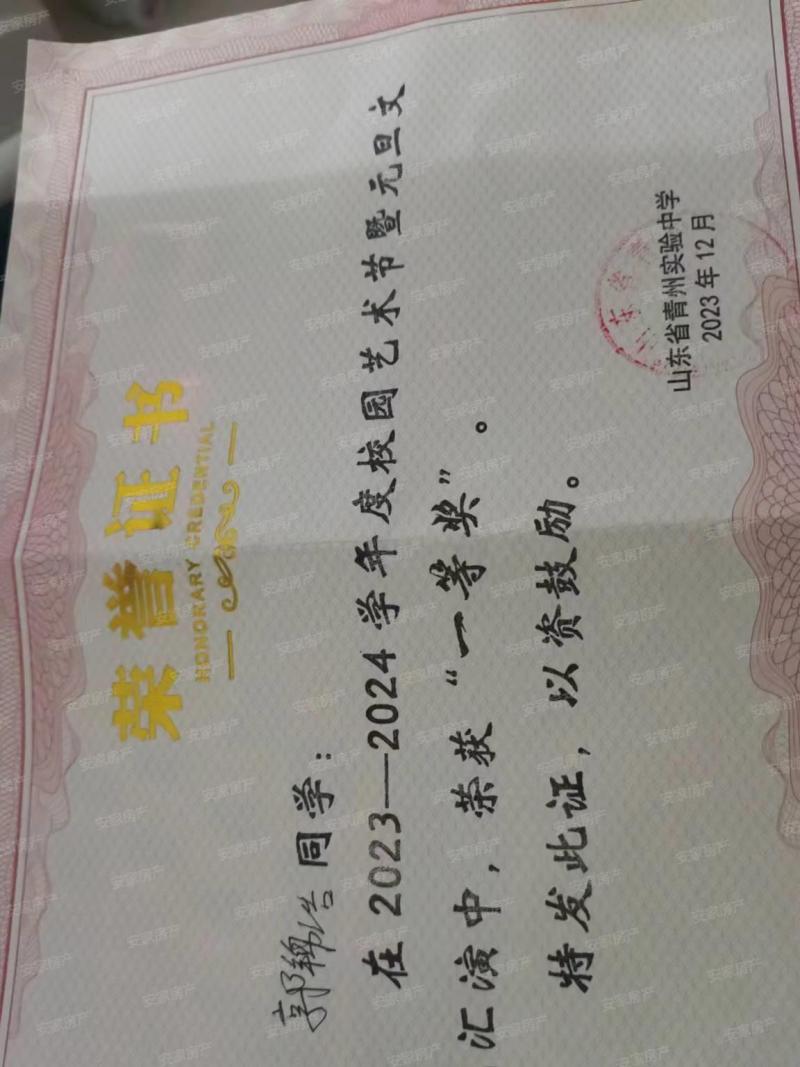 荣誉证书
HONORARY CREDENTIAL
郭 同学：
在2023—2024学年度校园艺术节暨元旦文
汇演中，荣获“一等奖”。
特发此证，以资鼓励。
山东省青州实验中学
2023年12月
安家房产